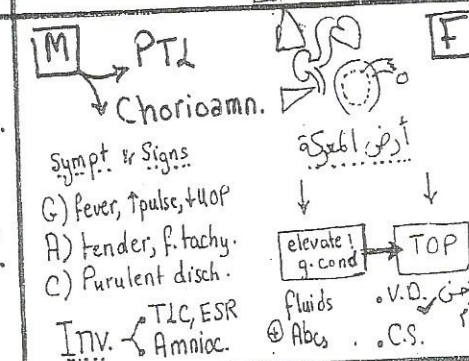 M
PTL
Chorioamn.
Sympt & Signs
G) fever, ↑pulse, ↓UOP
A) tender, f. tachy.
C) Purulent disch.
Inv.
TLC, ESR
Amnioc.
F
أرض المعركة
elevate !
g. cond
TOP
fluids
⊕ Abcs
. V.D.
. C.S.